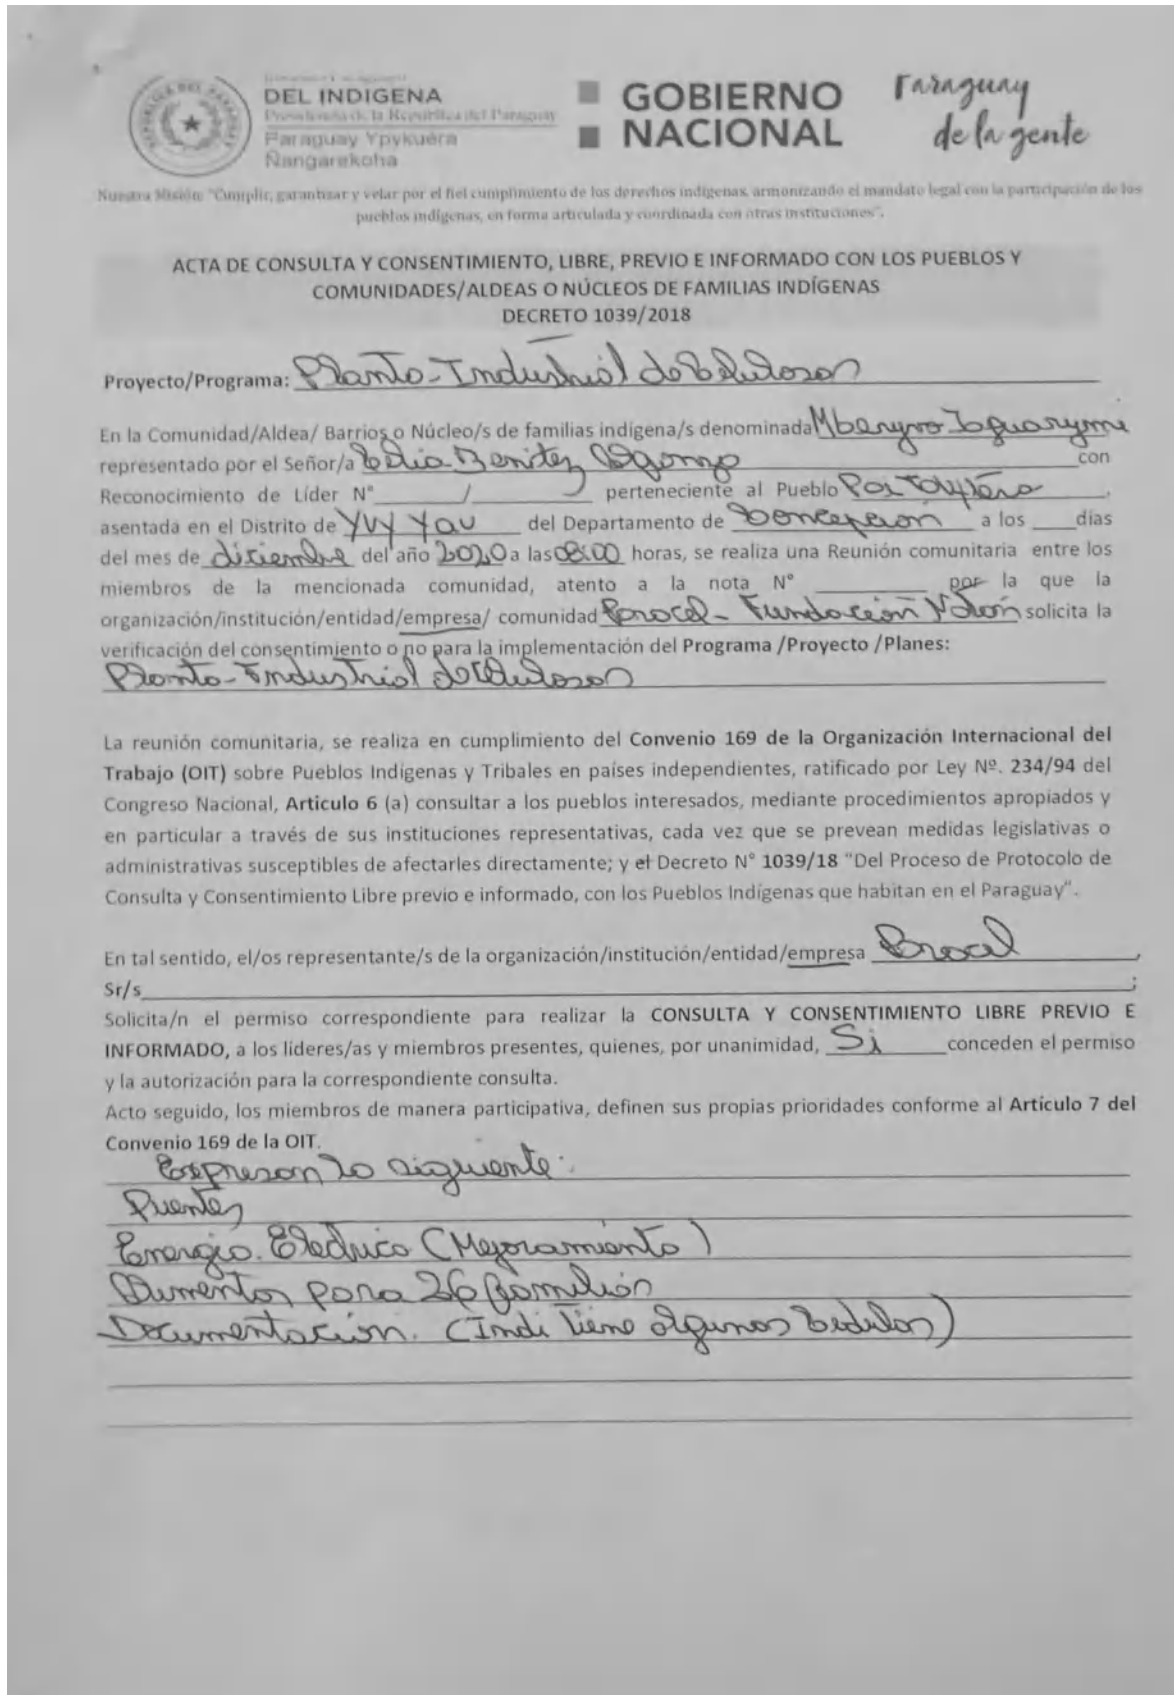 DEL INDIGENA
Presidencia de la República del Paraguay
Paraguay Ypykuéra
Ñangarekoha
REPUBLICA DEL PARAGUAY
GOBIERNO
NACIONAL
Paraguay
de la gente
Nuestra Misión: "Cumplir, garantizar y velar por el fiel cumplimiento de los derechos indígenas, armonizando el mandato legal con la participación de los
pueblos indígenas, en forma articulada y coordinada con otras instituciones".
ACTA DE CONSULTA Y CONSENTIMIENTO, LIBRE, PREVIO E INFORMADO CON LOS PUEBLOS Y
COMUNIDADES/ALDEAS O NÚCLEOS DE FAMILIAS INDÍGENAS
DECRETO 1039/2018
Proyecto/Programa: Planta-Industrial de Celulosa
En la Comunidad/Aldea/ Barrios o Núcleo/s de familias indígena/s denominada
representado por el Señor/a Benitez con
Reconocimiento de Líder N° / perteneciente al Pueblo Pai Tavytera,
asentada en el Distrito de Yvy Yau del Departamento de Concepción a los ___ días
del mes de diciembre del año 2020 a las 08:00 horas, se realiza una Reunión comunitaria entre los
miembros de la mencionada comunidad, atento a la nota N° ________ por la que la
organización/institución/entidad/empresa/ comunidad Paracel - Fundación solicita la
verificación del consentimiento o no para la implementación del Programa /Proyecto /Planes:
Planta-Industrial de Celulosa
La reunión comunitaria, se realiza en cumplimiento del Convenio 169 de la Organización Internacional del
Trabajo (OIT) sobre Pueblos Indígenas y Tribales en países independientes, ratificado por Ley Nº. 234/94 del
Congreso Nacional, Articulo 6 (a) consultar a los pueblos interesados, mediante procedimientos apropiados y
en particular a través de sus instituciones representativas, cada vez que se prevean medidas legislativas o
administrativas susceptibles de afectarles directamente; y el Decreto N° 1039/18 "Del Proceso de Protocolo de
Consulta y Consentimiento Libre previo e informado, con los Pueblos Indígenas que habitan en el Paraguay".
En tal sentido, el/os representante/s de la organización/institución/entidad/empresa Paracel,
Sr/s________;
Solicita/n el permiso correspondiente para realizar la CONSULTA Y CONSENTIMIENTO LIBRE PREVIO E
INFORMADO, a los lideres/as y miembros presentes, quienes, por unanimidad, Si conceden el permiso
y la autorización para la correspondiente consulta.
Acto seguido, los miembros de manera participativa, definen sus propias prioridades conforme al Artículo 7 del
Convenio 169 de la OIT.
Expresan lo siguiente:
Puentes
Energia. Electrica (Mejoramiento)
Alimentos para 26 familias
Documentación. (Indi tiene algunas Cedulas)